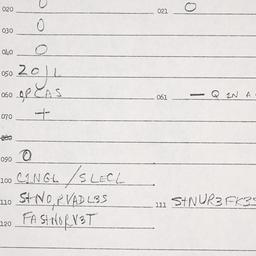 020 0 021 0
030 0
040 0
050 20JL
060 0PCAS 061 — Q IN A
070 +
080
090 0
100 C1NGL/SLECL
110 StNO,PVADLBS 111 StNUR3FK3S
120 FAStNORV3T